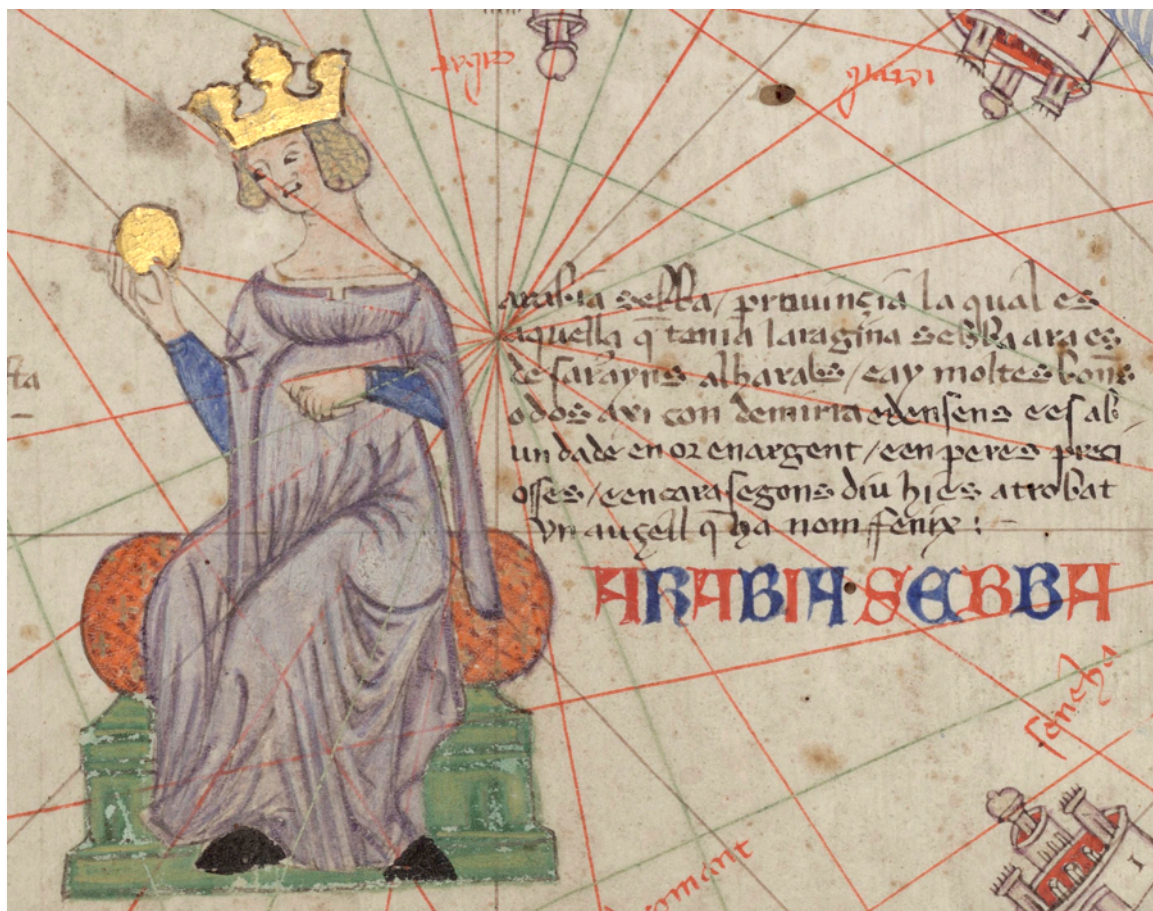 arabia sebba / prouinçia la qual es
aquella q̄ tenia la ragina sebba ara es
de sarayns alharabs / e ay moltes bons
odos axi con de mirra e densens e es ab
undade en or en argent / e en peres preci
osses / e encara segons diu hi es atrobat
vn auçell q̄ ha nom ffenix :
ARABIA SEBBA